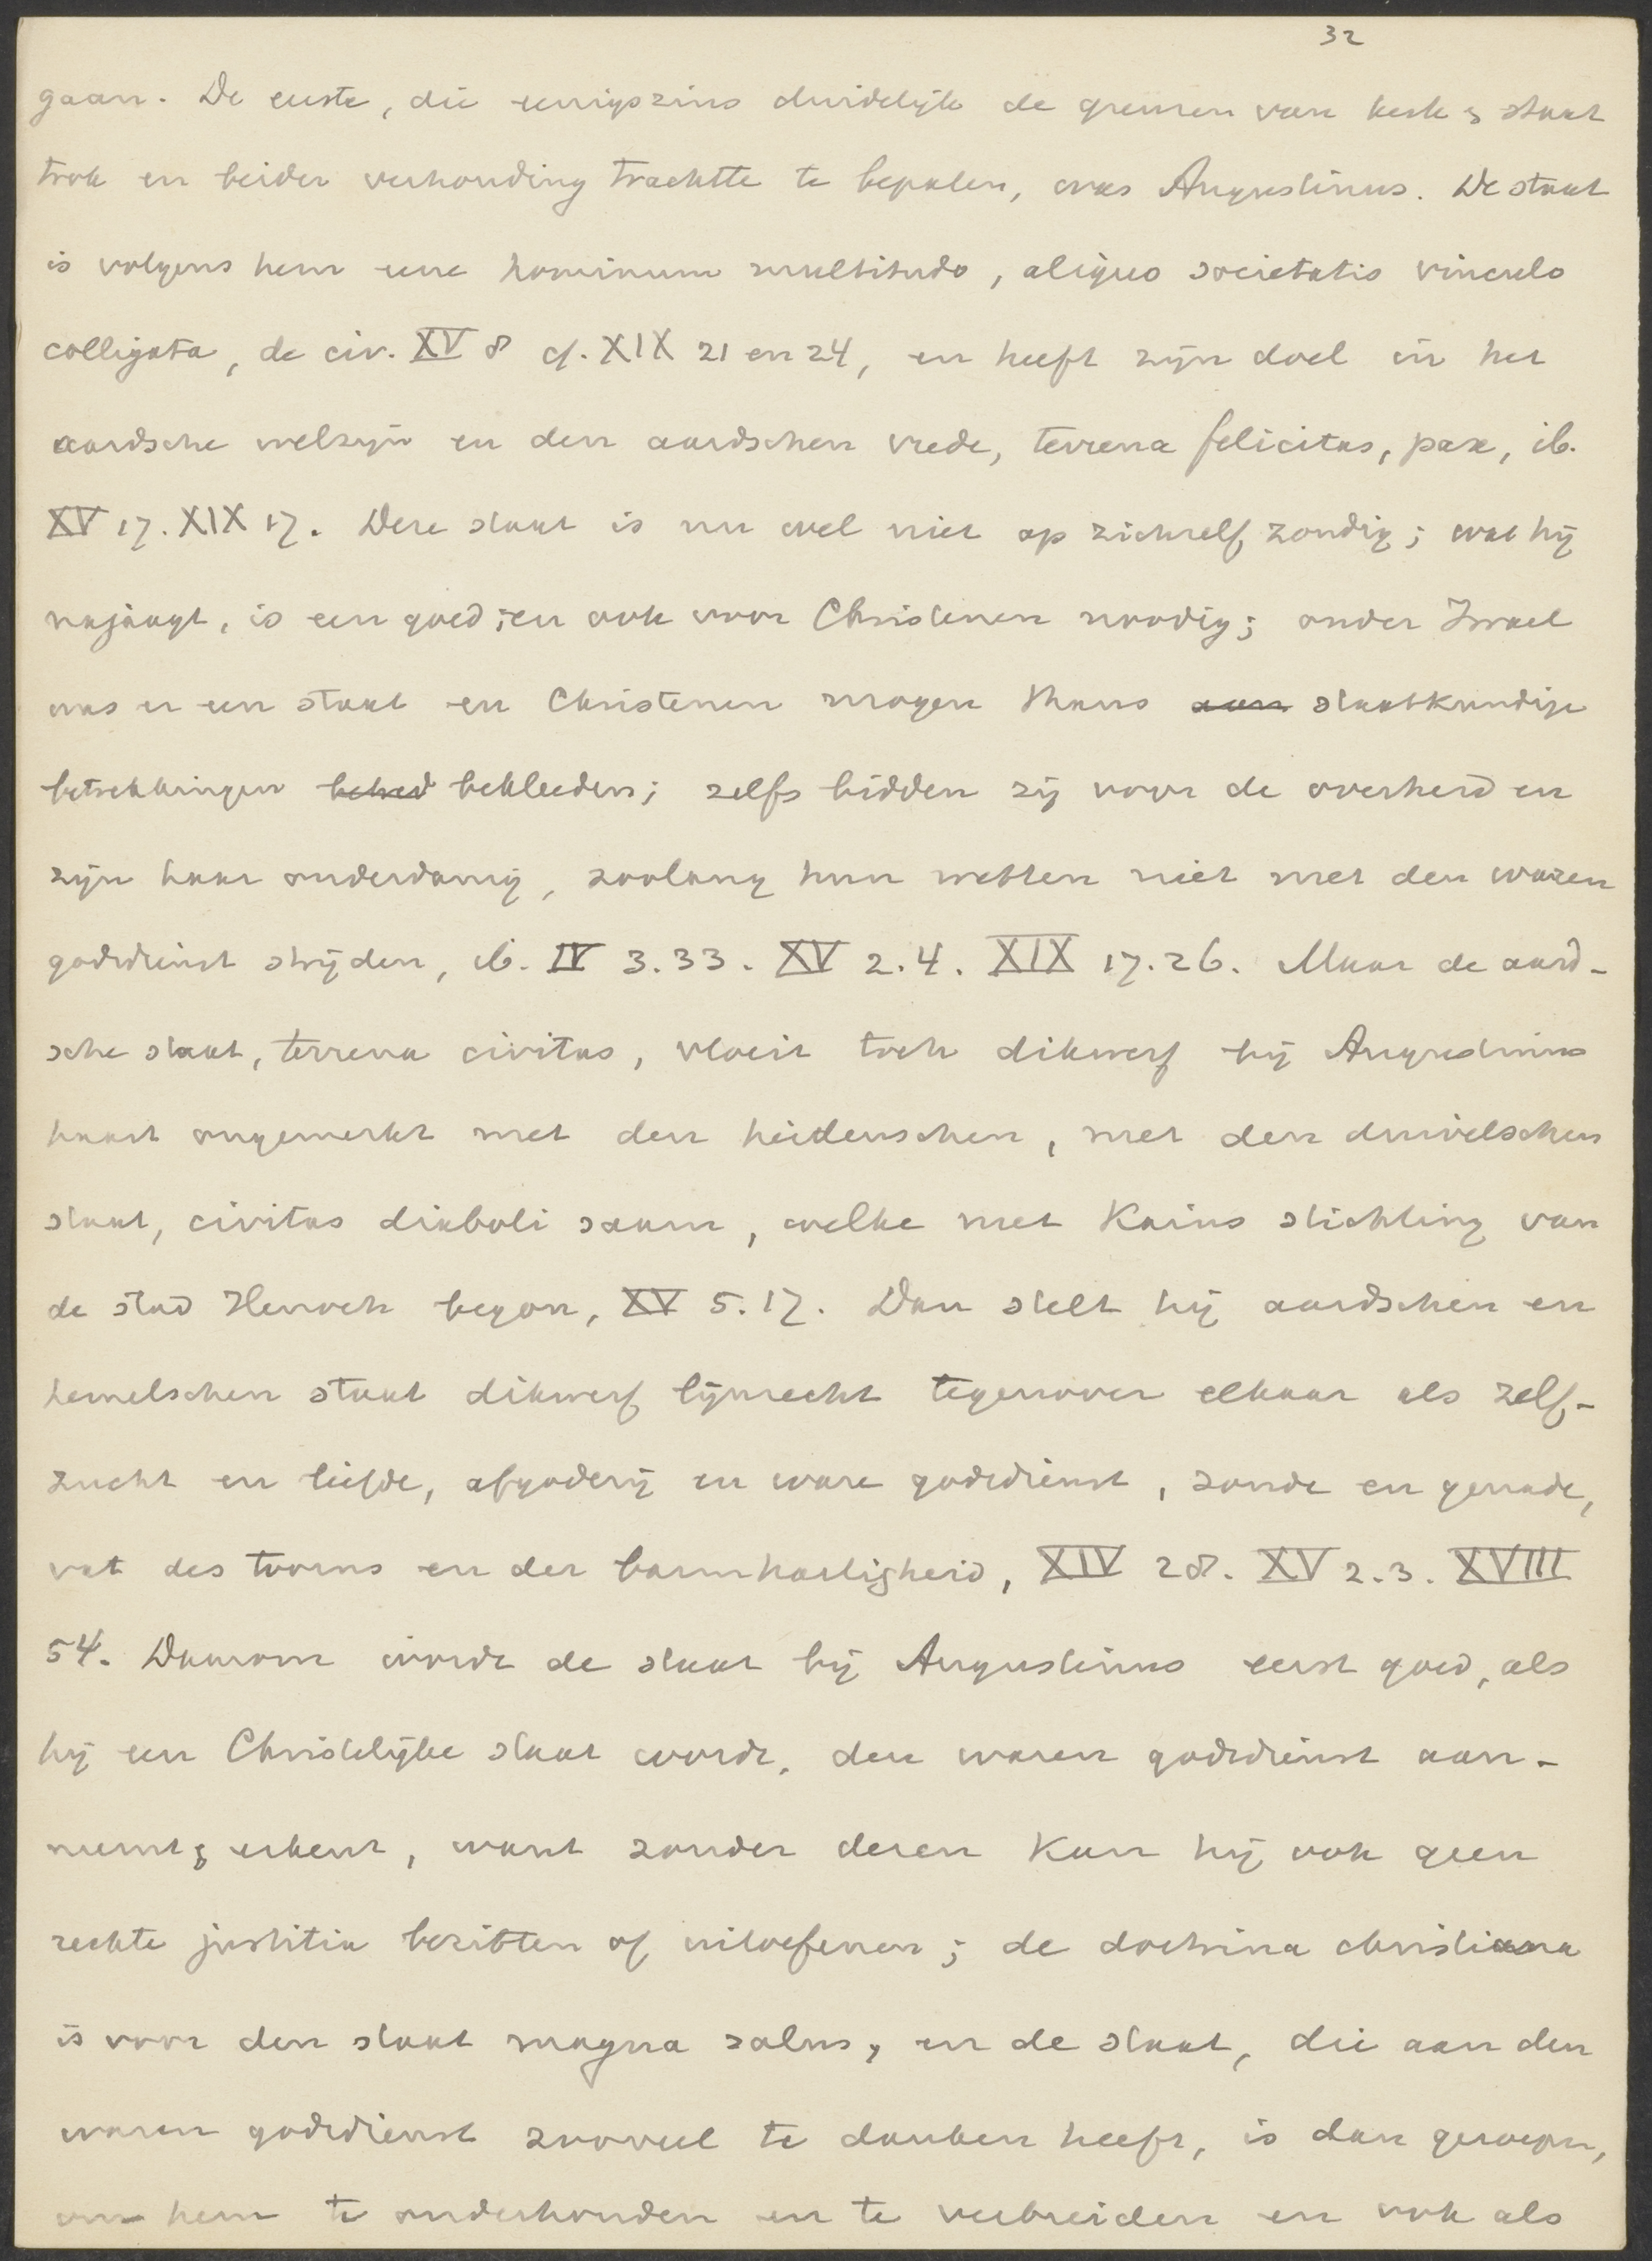 32
gaan. De eerste, die eenigszins duidelijk de grenzen van kerk & staat
trok en beider verhouding trachtte te bepalen, was Augustinus. De staat
is volgens hem eene hominum multitudo, aliquo societatis vinculo
colligata, de civ. XV 8 cf. XIX 21 en 24, en heeft zijn doel in het
aardsche welzijn en den aardschen vrede, terrena felicitas, pax, ib.
XV 17. XIX 17. Deze staat is nu wel niet op zichzelf zondig; wat hij
najaagt, is een goed; en ook voor Christenen noodig; onder Israel
was er een staat en Christenen mogen thans aan staatkundige
betrekkingen bekleeden; zelfs bidden zij voor de overheid en
zijn haar onderdanig, zoolang hun wetten niet met den waren
godsdienst strijden, ib. IV 3.33. XV 2.4. XIX 17.26. Maar de aard-
sche staat, terrena civitas, vloeit toch dikwerf bij Augustinus
haast ongemerkt met den heidenschen, met den duivelschen
staat, civitas diaboli saam, welke met Kains stichting van
de stad Henoch begon, XV 5.17. Dan stelt hij aardschen en
hemelschen staat dikwerf lijnrecht tegenover elkaar als zelf-
zucht en liefde, afgoderij en ware godsdienst, zonde en genade,
vat des toorns en der barmhartigheid, XIV 28. XV 2.3. XVIII
54. Daarom wordt de staat bij Augustinus eerst goed, als
hij een Christelijke staat wordt, den waren godsdienst aan-
neemt & erkent, want zonder dezen kan hij ook geen
rechte justitia bezitten of uitoefenen; de doctrina christiana
is voor den staat magna salus, en de staat, die aan den
waren godsdienst zooveel te danken heeft, is dan geroepen,
om hem te onderhouden en te verbreiden en ook als